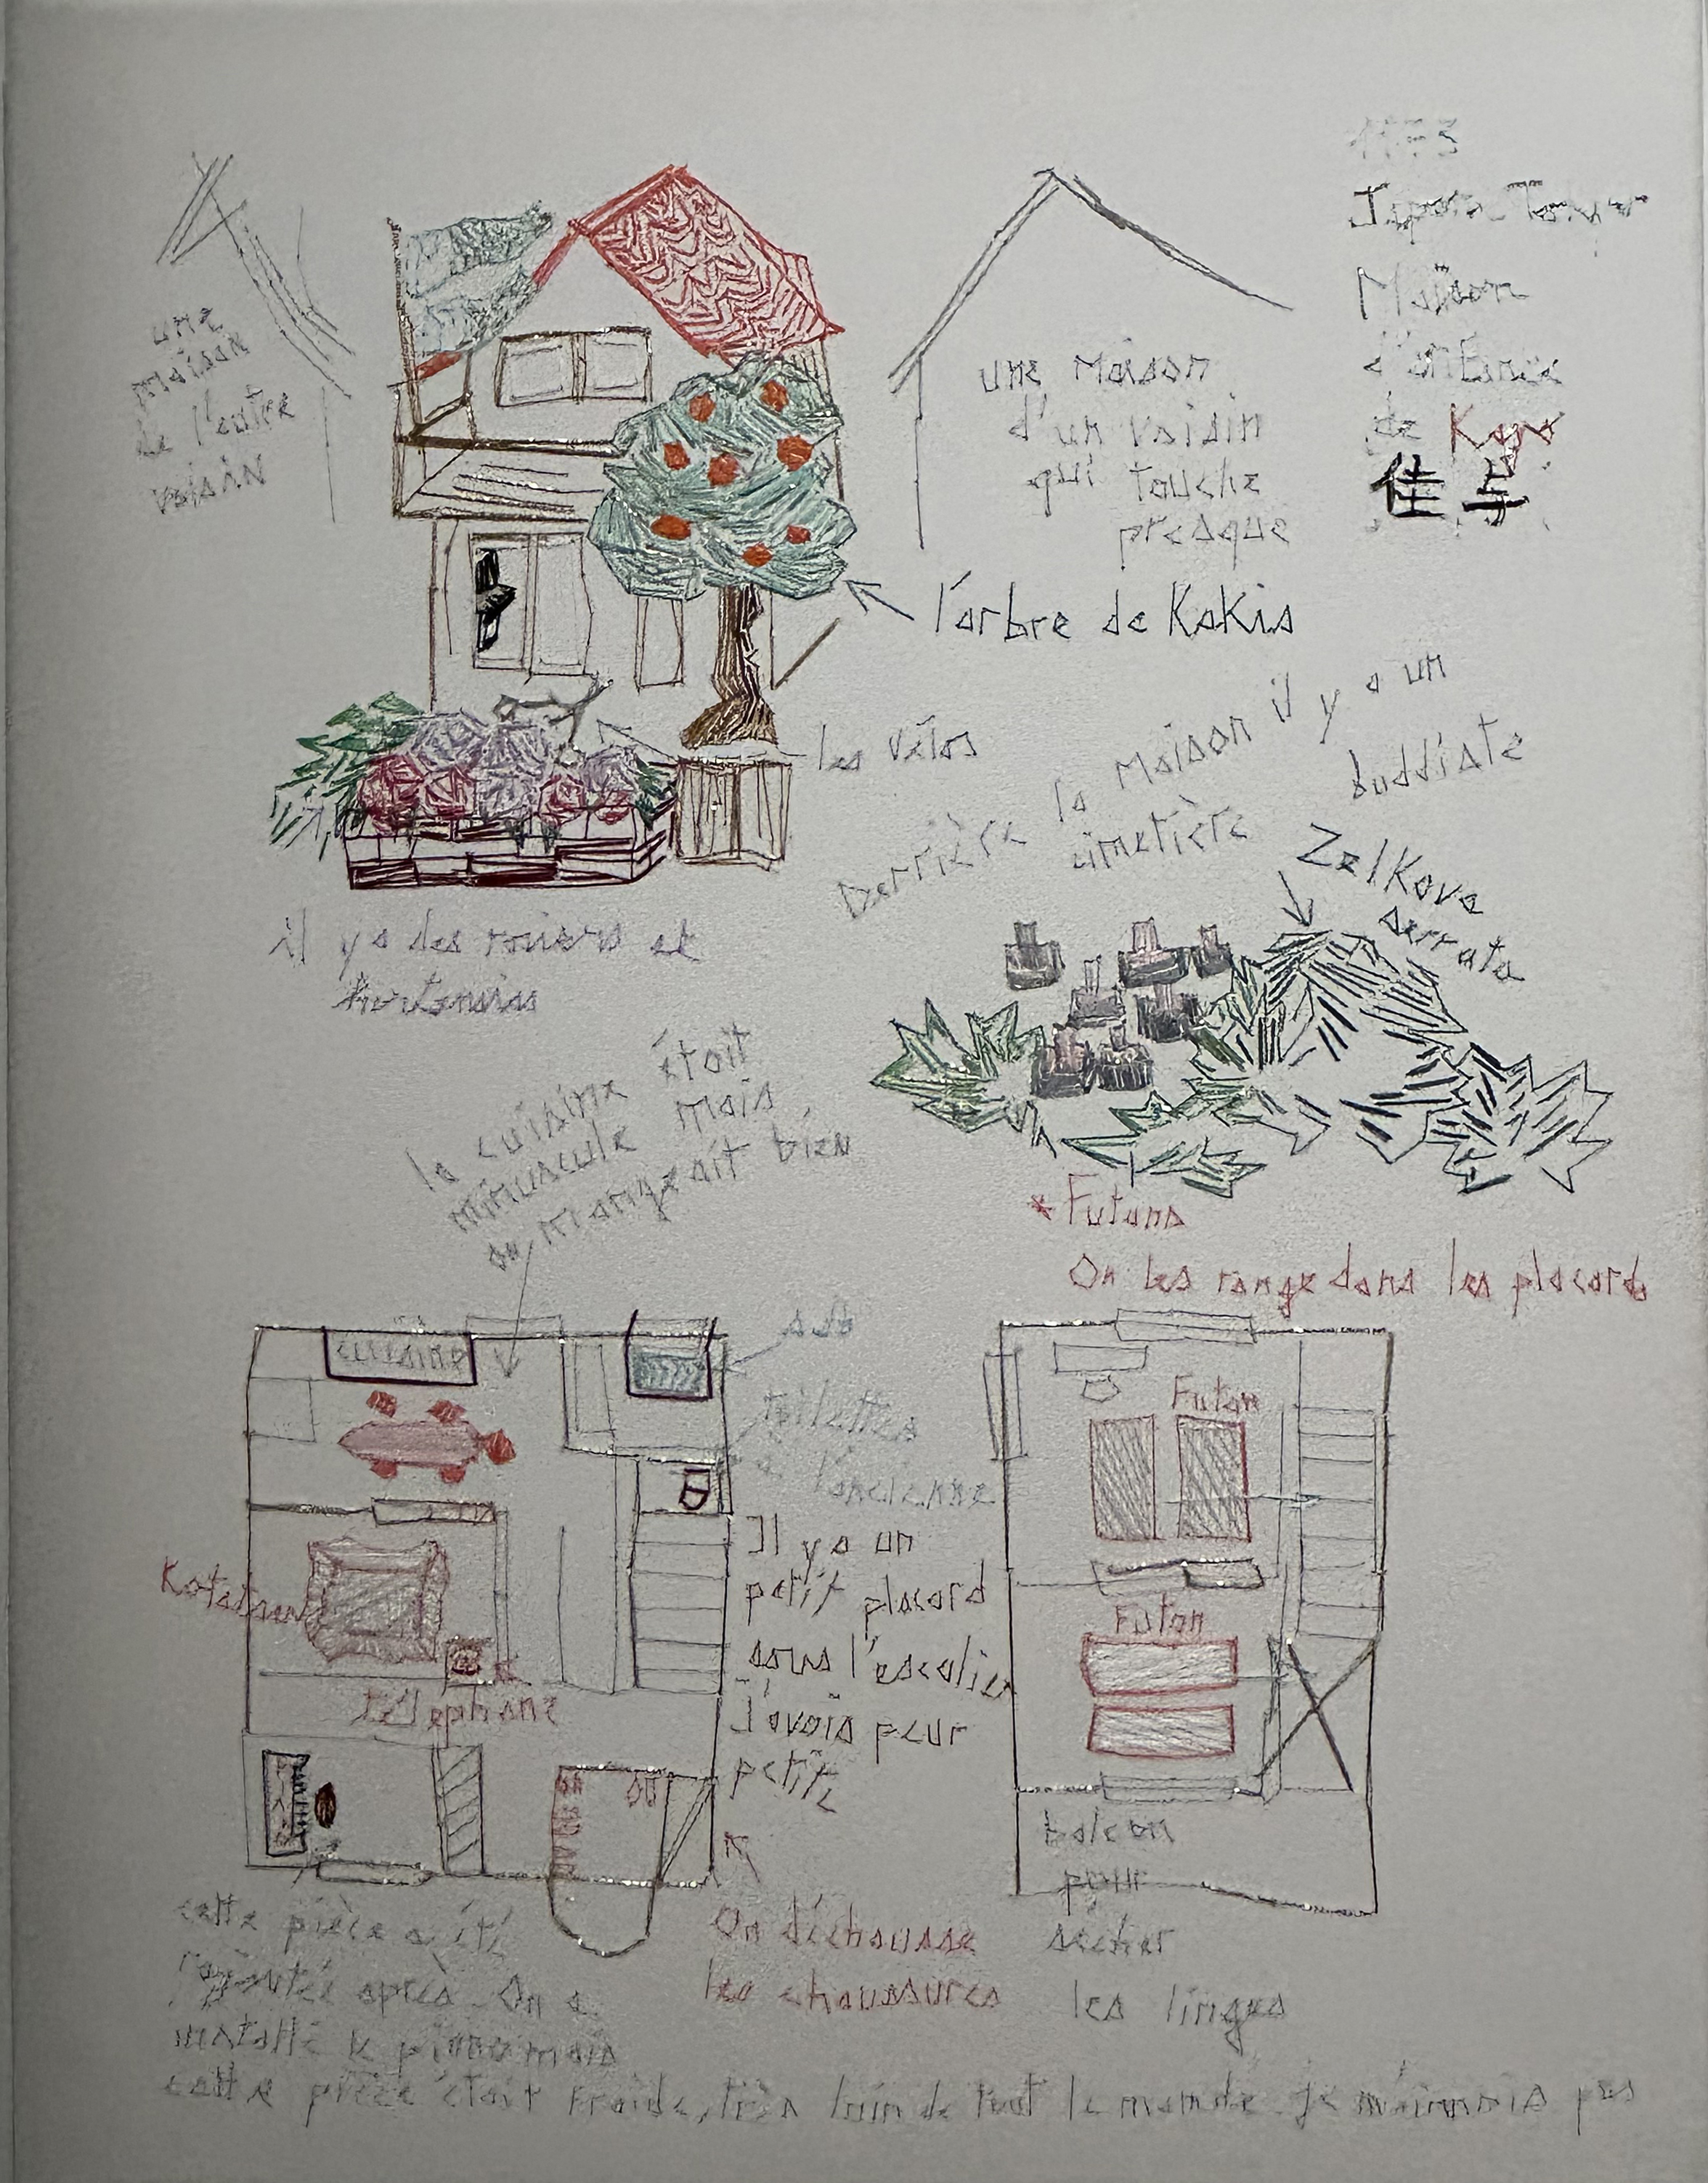 Maison
d'enfance
de Kayo
佳与
une
maison
de l'autre
voisin
une maison
d'un voisin
qui touche
presque
l'arbre de Kakis
les vélos
Derrière la maison il y a un
cimetière buddiste
Zelkova
serrata
il y a des rosiers et
hortensias
la cuisine était
minuscule mais
on mangeait bien
*Futons
On les range dans les placards
cuisine
sdb
toilettes
à l'ancienne
Futon
Il y a un
petit placard
sous l'escalier
J'avais peur
petite
Futon
téléphone
PIANO
balcon
pour
sécher
les linges
On déchausse
les chaussures
cette pièce a été
rajoutée après. On a
installé le piano mais
cette pièce était froide, très loin de tout le monde. je